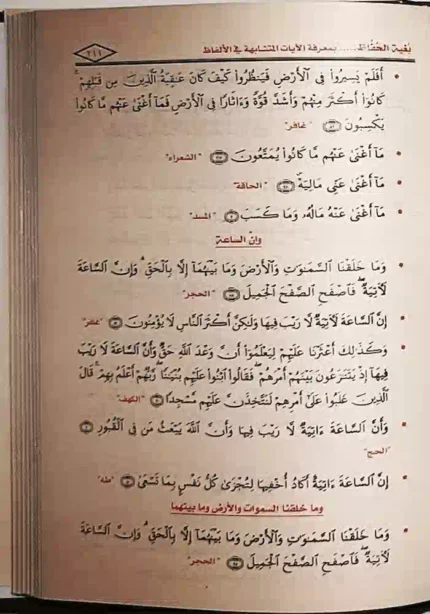 بغية الحفاظ ..... بمعرفة الآيات المتشابهة في الألفاظ ٢١١
• أَفَلَمْ يَسِيرُوا۟ فِى ٱلْأَرْضِ فَيَنظُرُوا۟ كَيْفَ كَانَ عَـٰقِبَةُ ٱلَّذِينَ مِن قَبْلِهِمْ
كَانُوٓا۟ أَكْثَرَ مِنْهُمْ وَأَشَدَّ قُوَّةً وَءَاثَارًا فِى ٱلْأَرْضِ فَمَآ أَغْنَىٰ عَنْهُم مَّا كَانُوا۟
يَكْسِبُونَ "غافر"
• مَآ أَغْنَىٰ عَنْهُم مَّا كَانُوا۟ يُمَتَّعُونَ "الشعراء"
• مَآ أَغْنَىٰ عَنِّى مَالِيَهْ "الحاقة"
• مَآ أَغْنَىٰ عَنْهُ مَالُهُۥ وَمَا كَسَبَ "المسد"
وإن الساعة
• وَمَا خَلَقْنَا ٱلسَّمَـٰوَٰتِ وَٱلْأَرْضَ وَمَا بَيْنَهُمَآ إِلَّا بِٱلْحَقِّ وَإِنَّ ٱلسَّاعَةَ
لَـَٔاتِيَةٌ فَٱصْفَحِ ٱلصَّفْحَ ٱلْجَمِيلَ "الحجر"
• إِنَّ ٱلسَّاعَةَ لَـَٔاتِيَةٌ لَّا رَيْبَ فِيهَا وَلَـٰكِنَّ أَكْثَرَ ٱلنَّاسِ لَا يُؤْمِنُونَ "غافر"
• وَكَذَٰلِكَ أَعْثَرْنَا عَلَيْهِمْ لِيَعْلَمُوٓا۟ أَنَّ وَعْدَ ٱللَّهِ حَقٌّ وَأَنَّ ٱلسَّاعَةَ لَا رَيْبَ
فِيهَآ إِذْ يَتَنَـٰزَعُونَ بَيْنَهُمْ أَمْرَهُمْ فَقَالُوا۟ ٱبْنُوا۟ عَلَيْهِم بُنْيَـٰنًا رَّبُّهُمْ أَعْلَمُ بِهِمْ قَالَ
ٱلَّذِينَ غَلَبُوا۟ عَلَىٰٓ أَمْرِهِمْ لَنَتَّخِذَنَّ عَلَيْهِم مَّسْجِدًا "الكهف"
• وَأَنَّ ٱلسَّاعَةَ ءَاتِيَةٌ لَّا رَيْبَ فِيهَا وَأَنَّ ٱللَّهَ يَبْعَثُ مَن فِى ٱلْقُبُورِ
"الحج"
• إِنَّ ٱلسَّاعَةَ ءَاتِيَةٌ أَكَادُ أُخْفِيهَا لِتُجْزَىٰ كُلُّ نَفْسٍۭ بِمَا تَسْعَىٰ "طه"
وما خلقنا السموات والأرض وما بينهما
• وَمَا خَلَقْنَا ٱلسَّمَـٰوَٰتِ وَٱلْأَرْضَ وَمَا بَيْنَهُمَآ إِلَّا بِٱلْحَقِّ وَإِنَّ ٱلسَّاعَةَ
لَـَٔاتِيَةٌ فَٱصْفَحِ ٱلصَّفْحَ ٱلْجَمِيلَ "الحجر"